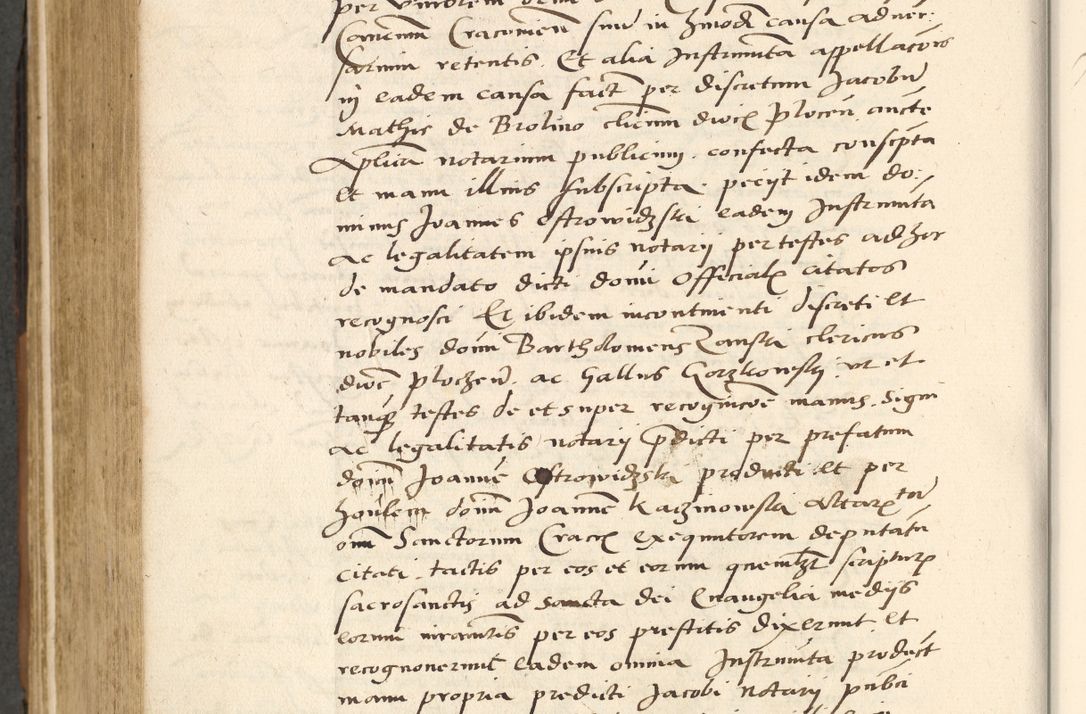 Canonicum Cracovien sive in hmoi causa adver:
sarium retentis. Et alia Instrumta appellacois
in eadem causa fact per discretum Jacobu
Mathie de Brolino clicum dioc Plocen aucte
Aplica notarium publicum. confecta conscpta
et manu illius subscripta. peciit idem do:
minus Joannes Ostrowidzski eadem Instrumta
ac legalitatem ipsius notarij per testes ad hoc
de mandato dicti domi Officialis citatos
recognosci Et ibidem incontinenti discreti et
nobiles domi Bartholomeus Zanski clericus
dioc Ploczen. ac Gallus Gorzkowski. ut et
tanq testes de et super recognicoe manus. Signi
ac legalitatis notarij pdicti per prefatum
domi Joanne Ostrowidzski producti et per
hoiulem domi Joannem Kaczinowski altaristam
omi Sanctorum Crac exequutorem deputatu
citati. tactis per eos et eorum quemlzt scripturis
sacrosanctis ad sancta dei Evangelia medijs
eorum iuramtis per eos prestitis dixerunt et
recognoverunt eadem omnia Instrumta product
manu propria predicti Jacobi notarij publici